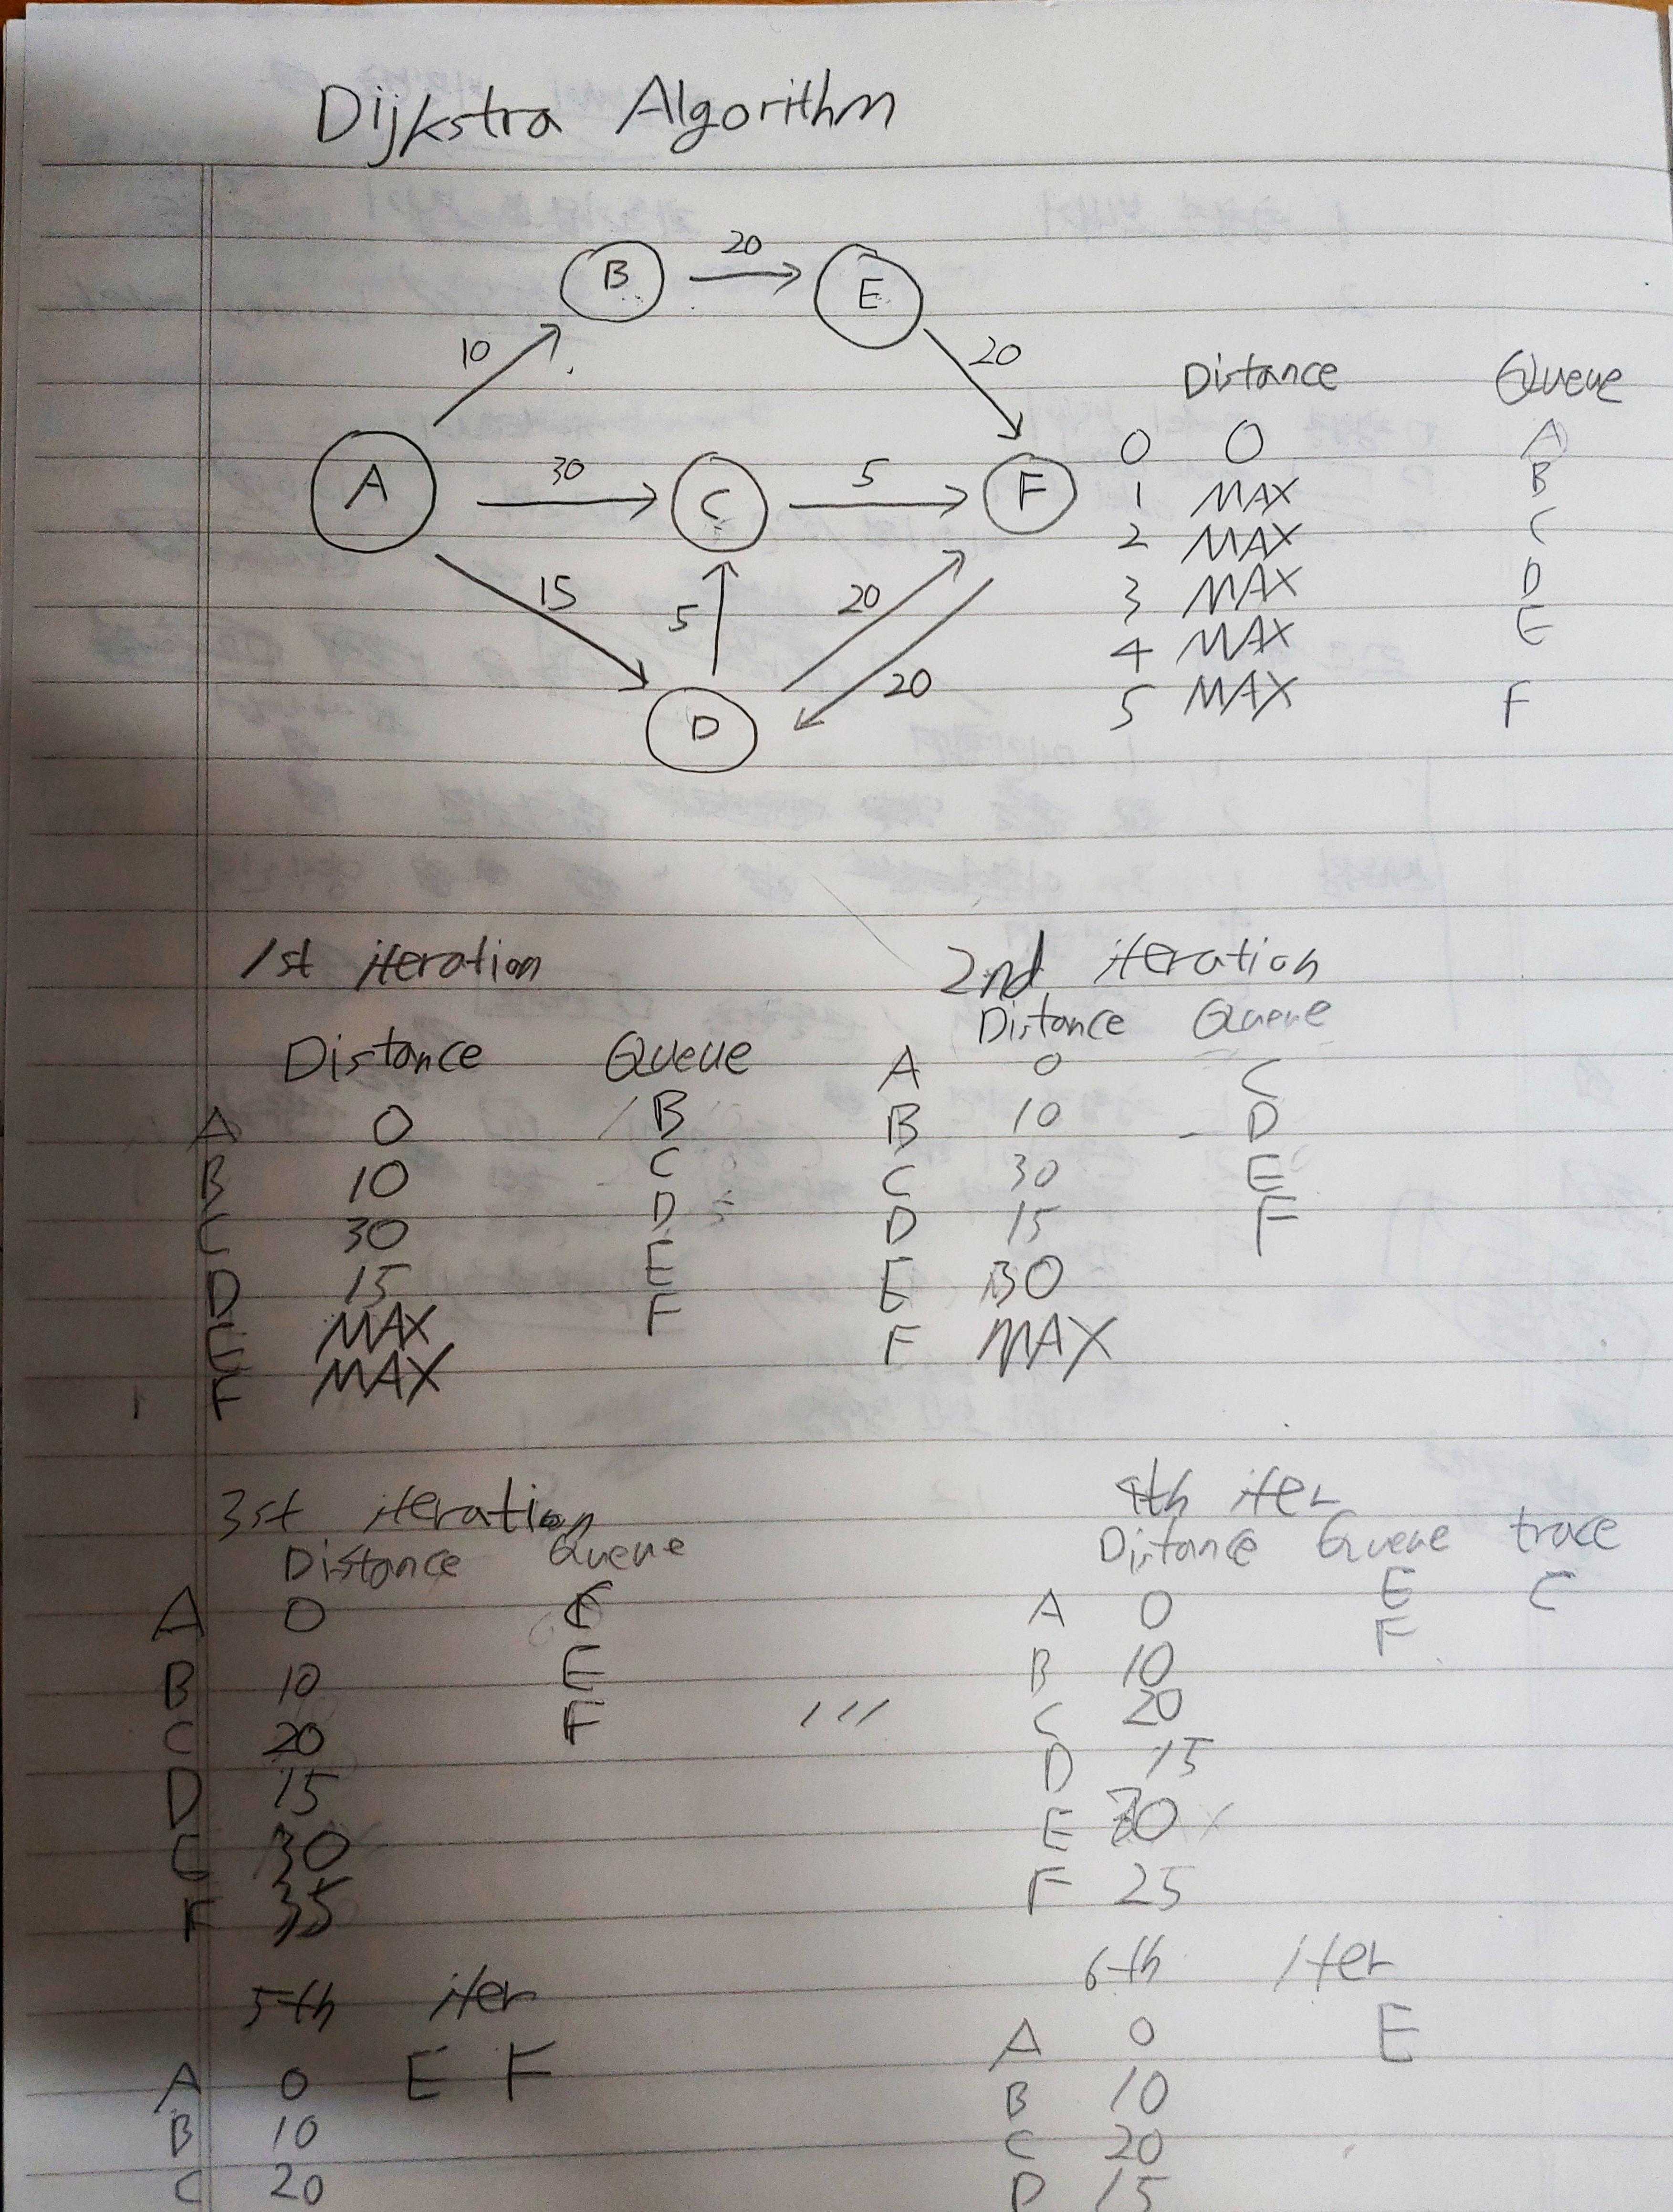 Dijkstra Algorithm
20
B
E
10
20
Distance Queue
0 0 A
A
30
C
5
F
1 MAX B
2 MAX C
15
5
20
3 MAX D
4 MAX E
20
5 MAX F
D
1st iteration
Distance Queue
A 0 B
B 10 C
C 30 D
D 15 E
E MAX F
F MAX
2nd iteration
Distance Queue
A 0 C
B 10 D
C 30 E
D 15 F
E 30
F MAX
3st iteration
Distance Queue
A 0
B 10 E
C 20 F
D 15
E 30
F 35
4th iter
Distance Queue trace
A 0 E C
B 10 F
C 20
D 15
E
F 25
5th iter
A 0 E F
B 10
C 20
6th iter
A 0 E
B 10
C 20
D 15